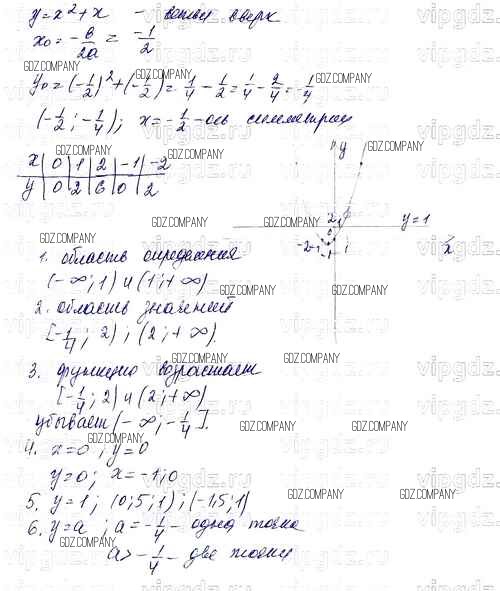 y=x²+x - ветви вверх
x₀=-в/2a=-1/2
y₀=(-1/2)²+(-1/2)=1/4-1/2=1/4-2/4=-1/4
(-1/2; -1/4); x=-1/2-ось симметрии
x|0|1|2|-1|-2
y|0|2|6|0|2
y
y=1
x
2
-2 -1
1
1. область определения
(-∞;1) и (1;+∞)
2. область значений
[-1/4; 2); (2;+∞).
3. функцию возрастает
[-1/4; 2) и (2;+∞)
убывает (-∞; -1/4].
4. x=0; y=0
y=0; x=-1;0
5. y=1; (0,5;1); (-1,5;1)
6. y=a; a=-1/4 - одна точка
a>-1/4 - две точки
GDZ.COMPANY
vipgdz.ru